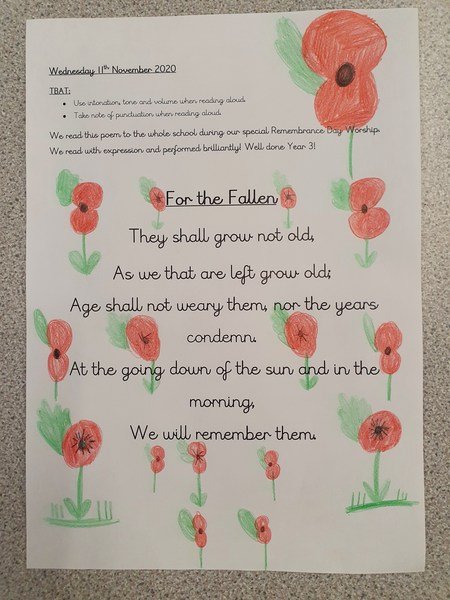 Wednesday 11th November 2020
TBAT:
• Use intonation, tone and volume when reading aloud.
• Take note of punctuation when reading aloud.
We read this poem to the whole school during our special Remembrance Day Worship.
We read with expression and performed brilliantly! Well done Year 3!
For the Fallen
They shall grow not old,
As we that are left grow old;
Age shall not weary them, nor the years
condemn.
At the going down of the sun and in the
morning,
We will remember them.